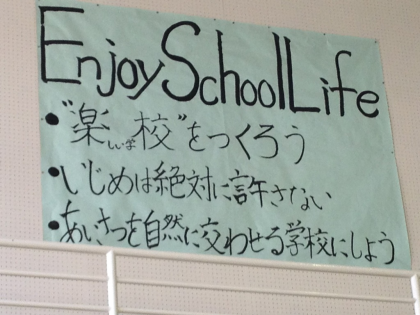 Enjoy School Life
●"楽校"をつくろう
●いじめは絶対に許さない
●あいさつを自然に交わせる学校にしよう